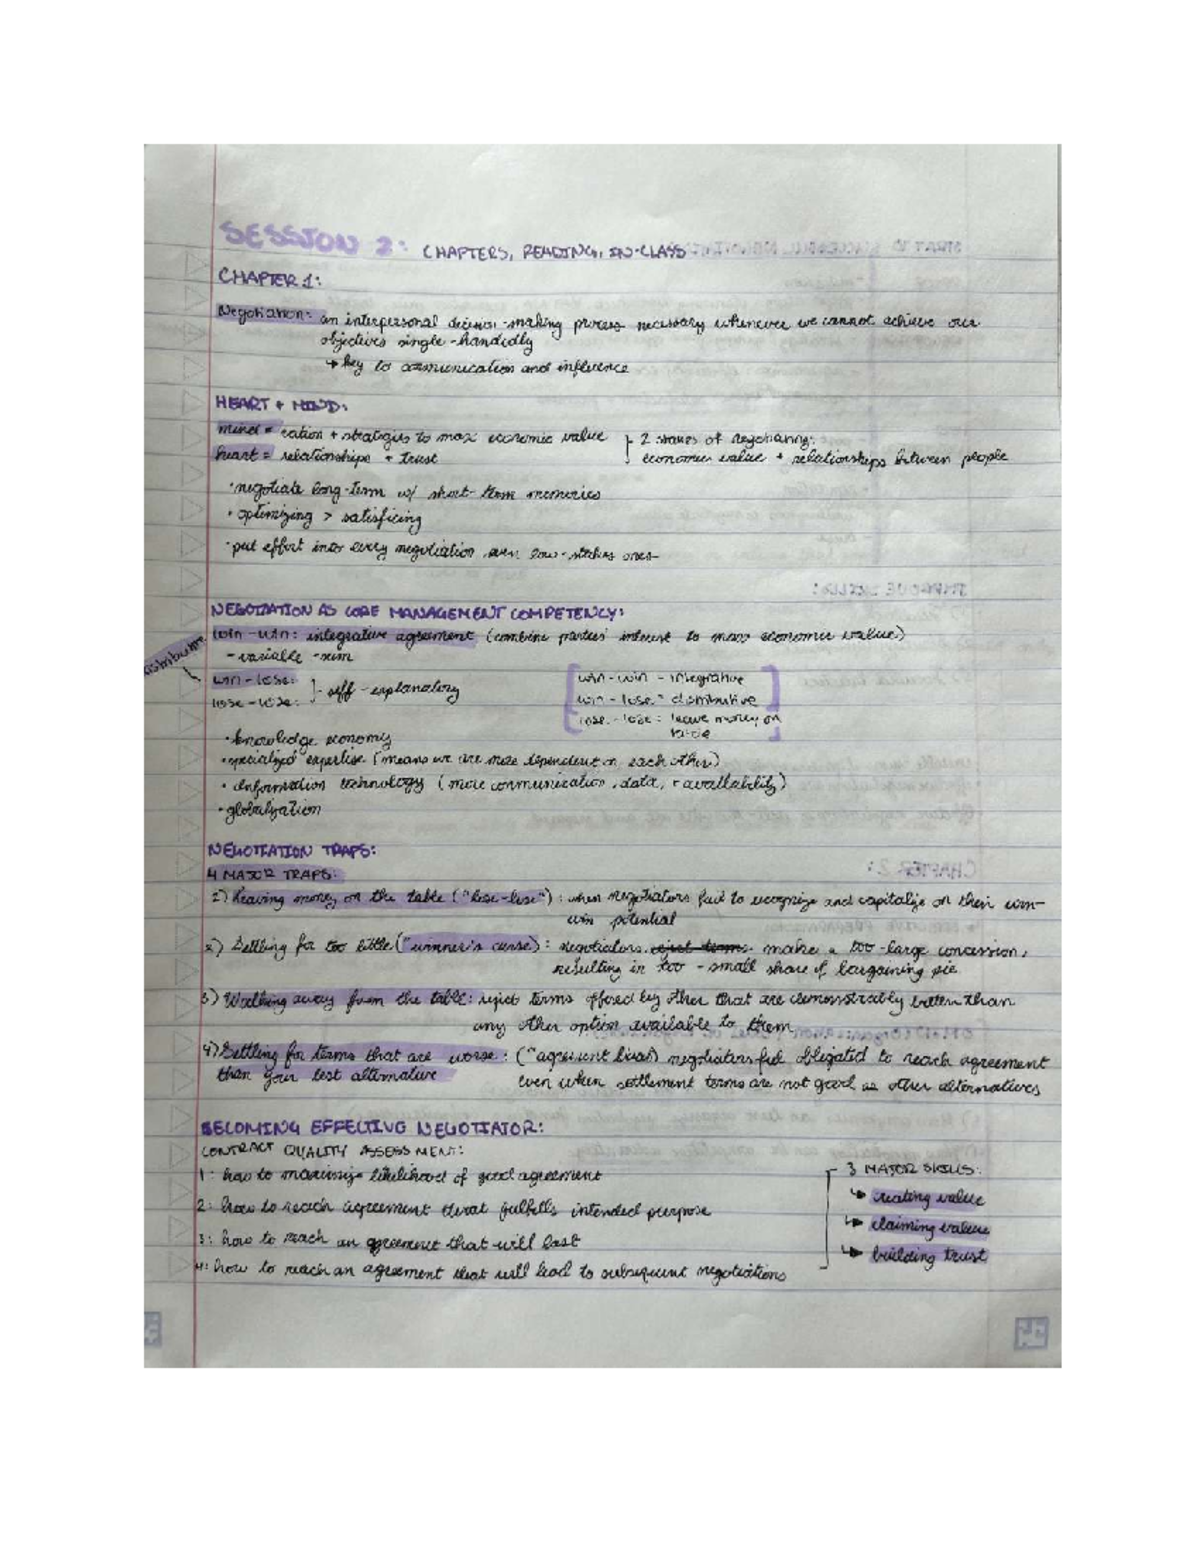 SESSION 2: CHAPTERS, READING, IN-CLASS
CHAPTER 1:
Negotiation: an interpersonal decision-making process necessary whenever we cannot achieve our
objectives single-handedly
↳ key to communication and influence
HEART + MIND:
mind = ration + strategies to max economic value } 2 stakes of negotiating:
heart = relationships + trust economic value + relationships between people
• negotiate long-term w/ short-term memories
• optimizing > satisficing
• put effort into every negotiation even low-stakes ones
NEGOTIATION AS CORE MANAGEMENT COMPETENCY:
win-win: integrative agreement (combine parties' interest to max economic value)
- variable-sum
distributive
win-lose: } self-explanatory
lose-lose:
win-win - integrative
win-lose = distributive
lose-lose: leave money on
table
• knowledge economy
• specialized expertise (means we are more dependent on each other)
• information technology (more communication, data, + availability)
• globalization
NEGOTIATION TRAPS:
4 MAJOR TRAPS:
1) Leaving money on the table ("lose-lose"): when negotiators fail to recognize and capitalize on their win-
win potential
2) Settling for too little ("winner's curse"): negotiators make a too-large concession,
resulting in too-small share of bargaining pie
3) Walking away from the table: reject terms offered by other that are demonstrably better than
any other option available to them
4) Settling for terms that are worse: ("agreement bias) negotiators feel obligated to reach agreement
than your best alternative even when settlement terms are not good as other alternatives
BECOMING EFFECTIVE NEGOTIATOR:
CONTRACT QUALITY ASSESSMENT:
1: how to maximize likelihood of good agreement
2: how to reach agreement that fulfills intended purpose
3: how to reach an agreement that will last
4: how to reach an agreement that will lead to subsequent negotiations
3 MAJOR SKILLS:
↳ creating value
↳ claiming value
↳ building trust